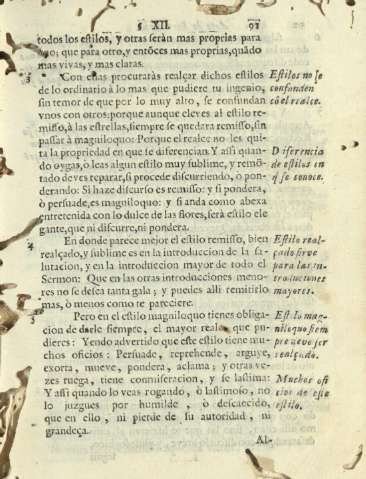 § XII. 91
todos los estilos, y otras seràn mas proprias para
vno; que para otro, y entõces mas proprias, quãdo
mas vivas, y mas claras.
3 Con estas procuraràs realçar dichos estilos
de lo ordinario à lo mas que pudiere tu ingenio,
sin temor de que por lo muy alto, se confundan
vnos con otros: porque aunque eleves al estilo re-
misso, à las estrellas, siempre se quedara remisso, sin
passar à magniloquo: Porque el realce no les qui-
ta la propriedad en que se diferencian. Y assi quan-
do oygas, ò leas algun estilo muy sublime, y remõ-
tado deves reparar, si procede discurriendo, o pon-
derando: Si haze discurso es remisso: y si pondera,
ò persuade, es magniloquo: y si anda como abexa
entretenida con lo dulce de las flores, serà estilo ele
gante, que ni discurre, ni pondera.
4 En donde parece mejor el estilo remisso, bien
realçado, y sublime es en la introduccion de la sa-
lutacion, y en la introduccion mayor de todo el
Sermon: Que en las otras introducciones meno-
res no se desea tanta gala; y puedes alli remitirlo
mas, ò menos como te pareciere.
5 Pero en el estilo magniloquo tienes obliga-
cion de darle siempre, el mayor realçe que pu-
dieres: Yendo advertido que este estilo tiene mu-
chos oficios: Persuade, reprehende, arguye,
exorta, mueve, pondera, aclama; y otras ve-
zes ruega, tiene conmiseracion, y se lastima:
Y assi quando lo veas rogando, ò lastimoso, no
lo juzgues por humilde, ò descaecido,
que en ello, ni pierde de su autoridad, ni
grandeça.
Al-
Estilos no se
confunden
cõ el realce.
Diferencia
de estilos en
q̃ se conoce.
Estilo real-
çado sirve
para las in-
troduciones
mayores.
Est lo mag-
niloquo siem
pre a de ser
realçado.
Muchos ofi
cios de este
estilo.